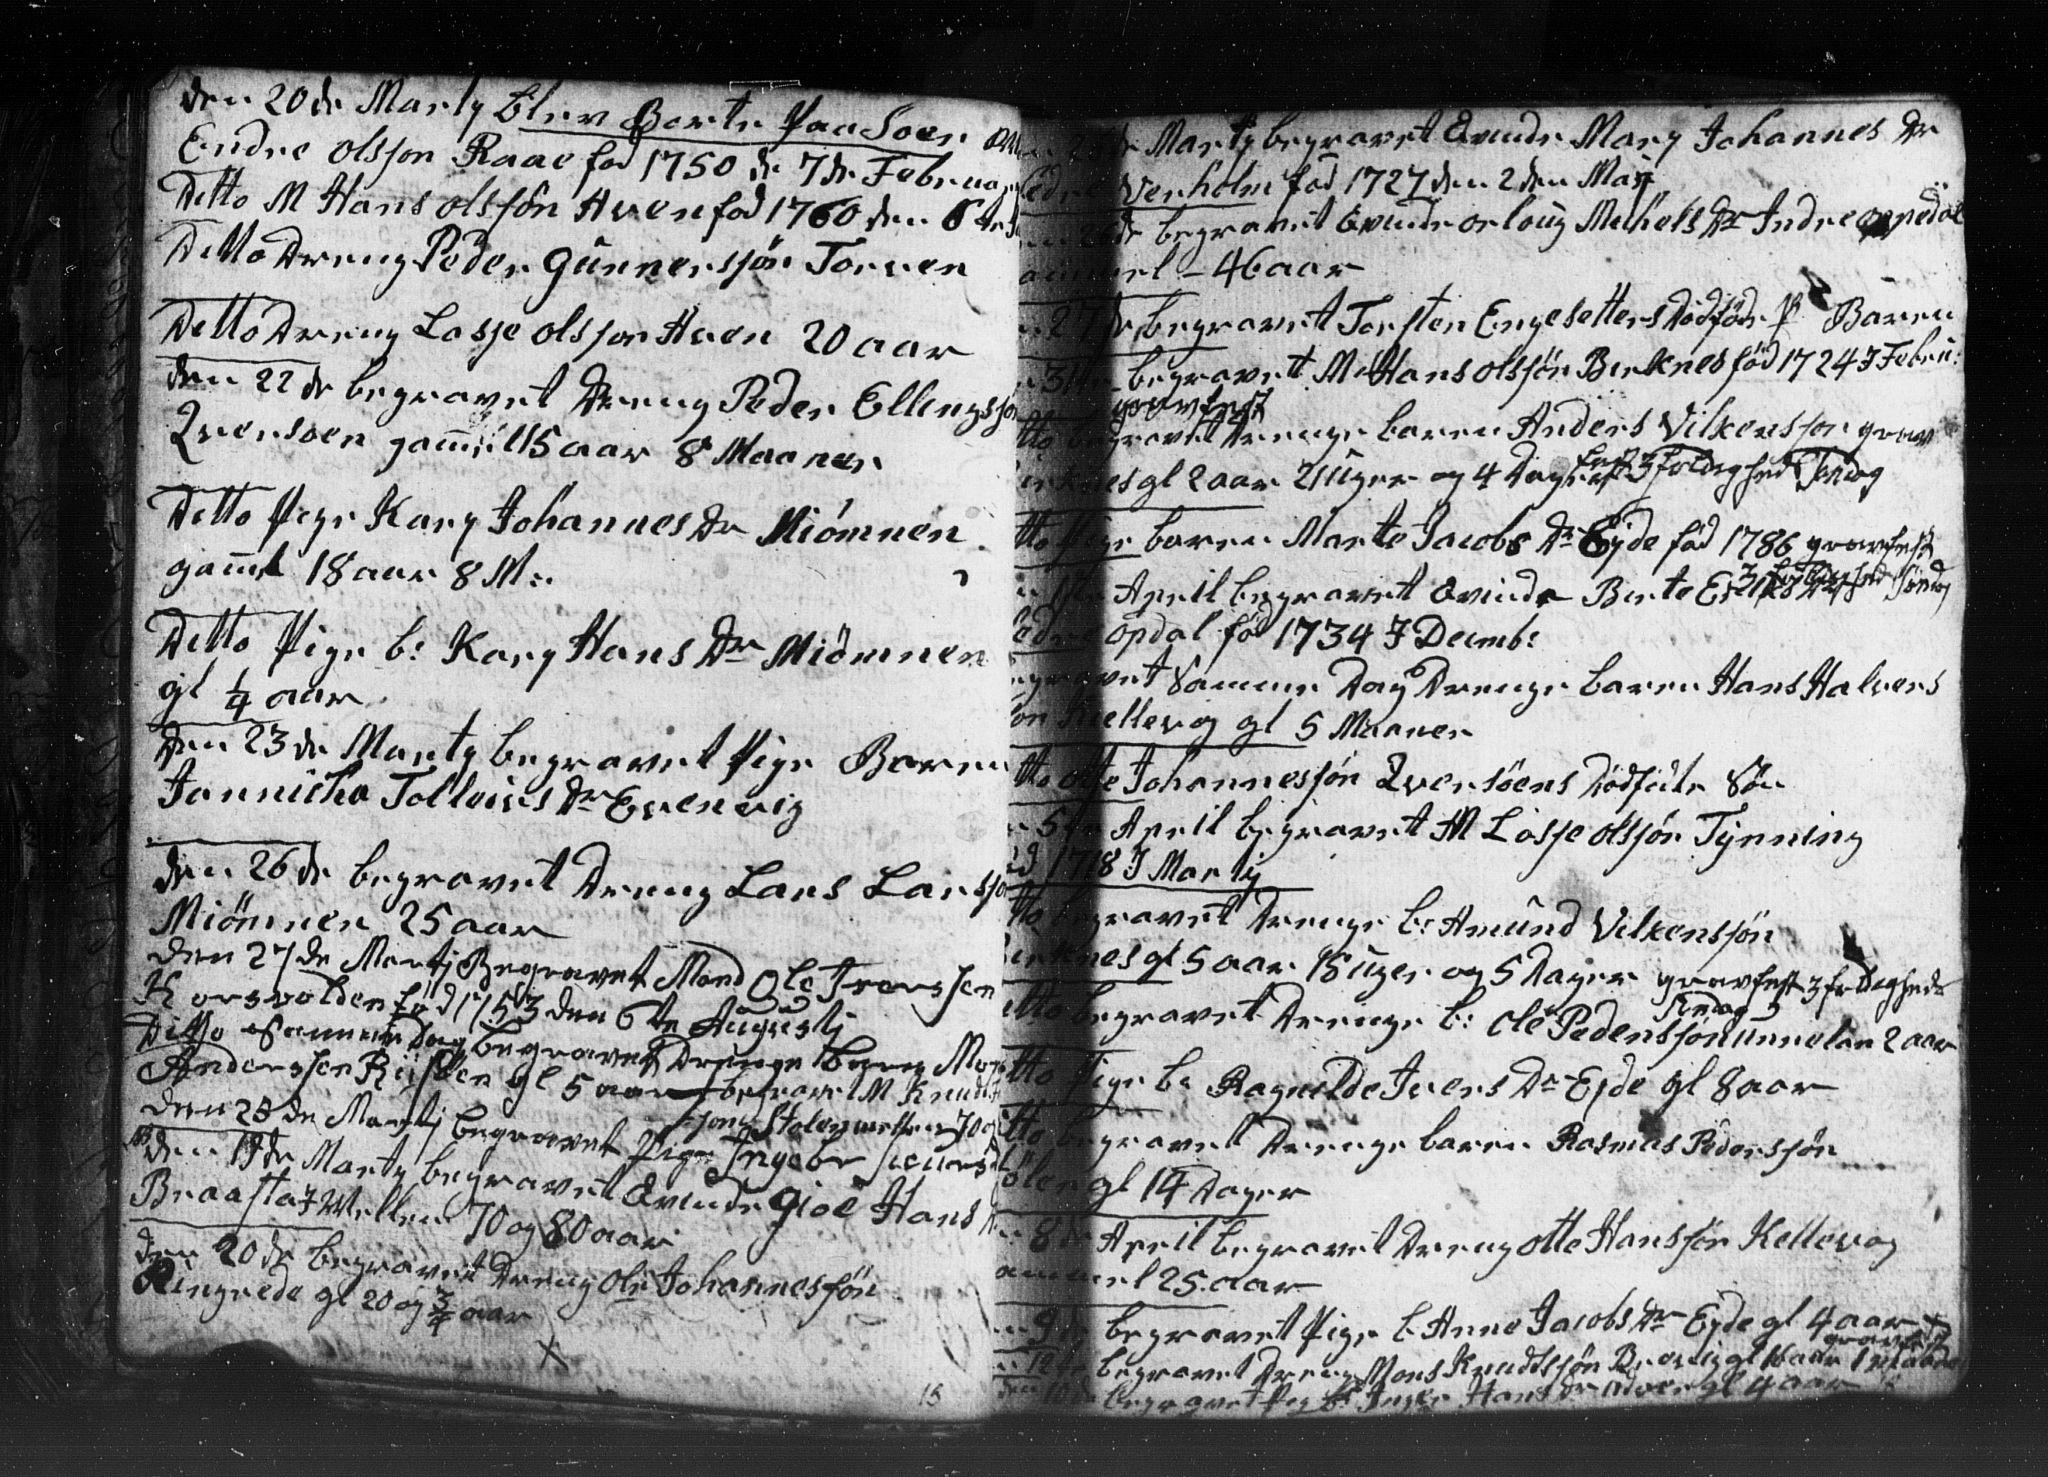 den 20de Marty blev Borte Paa Soen
Endre olsson Raae fød 1750 de 7de Februa
Ditto M Hans olssön Hven fød 1760 den 6te
Ditto Dreng Peder Gunnerssön Torven
Ditto Dreng Lasse olsson Hven 20 aar
den 22de begravet Dreng Peder Ellingssø
Qversoen gamel 15 aar 8 Maaner
Ditto Pige Kary Johannes Dr Miömnen
gamel 18 aar 8 M:
Ditto Pige b: Kary Hans Dr Miömnen
gl 1/4 aar
den 23de Marty begravet Pige Baren
Jannicka Tolleivs Dr Evenvig
den 26de begravet Dreng Lars Larssø
Miömnen 25 aar
den 27de Martj Begravet Mand Ole Iverssen
Korsvolden fød 1753 den 6te Augustj
Ditto Samme Dag begravet Drenge baren
Anderssen gl 5 aar begravet M Knud
den 28de Martj begravet Pige Ingebr
den 19de Marty begravet Qvinde Giöe Hans
Braastaj Wellem 70 og 80 aar
den 20de begravet Dreng Ole Johannessön
Ringrede gl 20 og 3/4 aar
15
Marty begravet Qvinde Mary Johannes Dr
Nerholm fød 1727 den 2den Maij
26de begravet Qvinde orloug Michels Dr Indre oppedal
- 46 aar
27de begravet Torsten Engesetters Dödföde P Baren
31te begravet M Hans olssön Birknes föd 1724 J Febru:
gravfest
begravet Drenge baren Anders Vilkensson grav
gl 2 aar 21 Uger og 4 Dager fest 3 foldighed Sondag
Pige baren Marte Jacobs Dr Eyde fød 1786 gravfest
April begravet Qvinde Birte
opdal fød 1734 J Decemb:
Samme Dag Drenge baren Hans Halvers
Kiellevog gl 5 Maaner
Otte Johannessön Qversöens Dödföde Sön
5te April begravet M Lasse olssön Tynning
1718 J Martj
begravet Drenge b: Amund Vilkenssön
gl 5 aar 15 Uger og 5 Dager gravfest 3 foldigheds
Sondag
begravet Drenge b: Ole Pederssön 2 aar
Pige b: Ragnilde Ivers Dr Eyde gl 8 aar
begravet Drenge baren Rasmus Pederssön
gl 14 Dager
8de April begravet Dreng otte Hanssön Kellevog
25 aar
9de begravet Pige b Anne Jacobs Dr Eyde gl 4 aar
begravet Dreng Mons Knudssön gl 16 aar
begravet Pige b: Hans Dr gl 4 aar